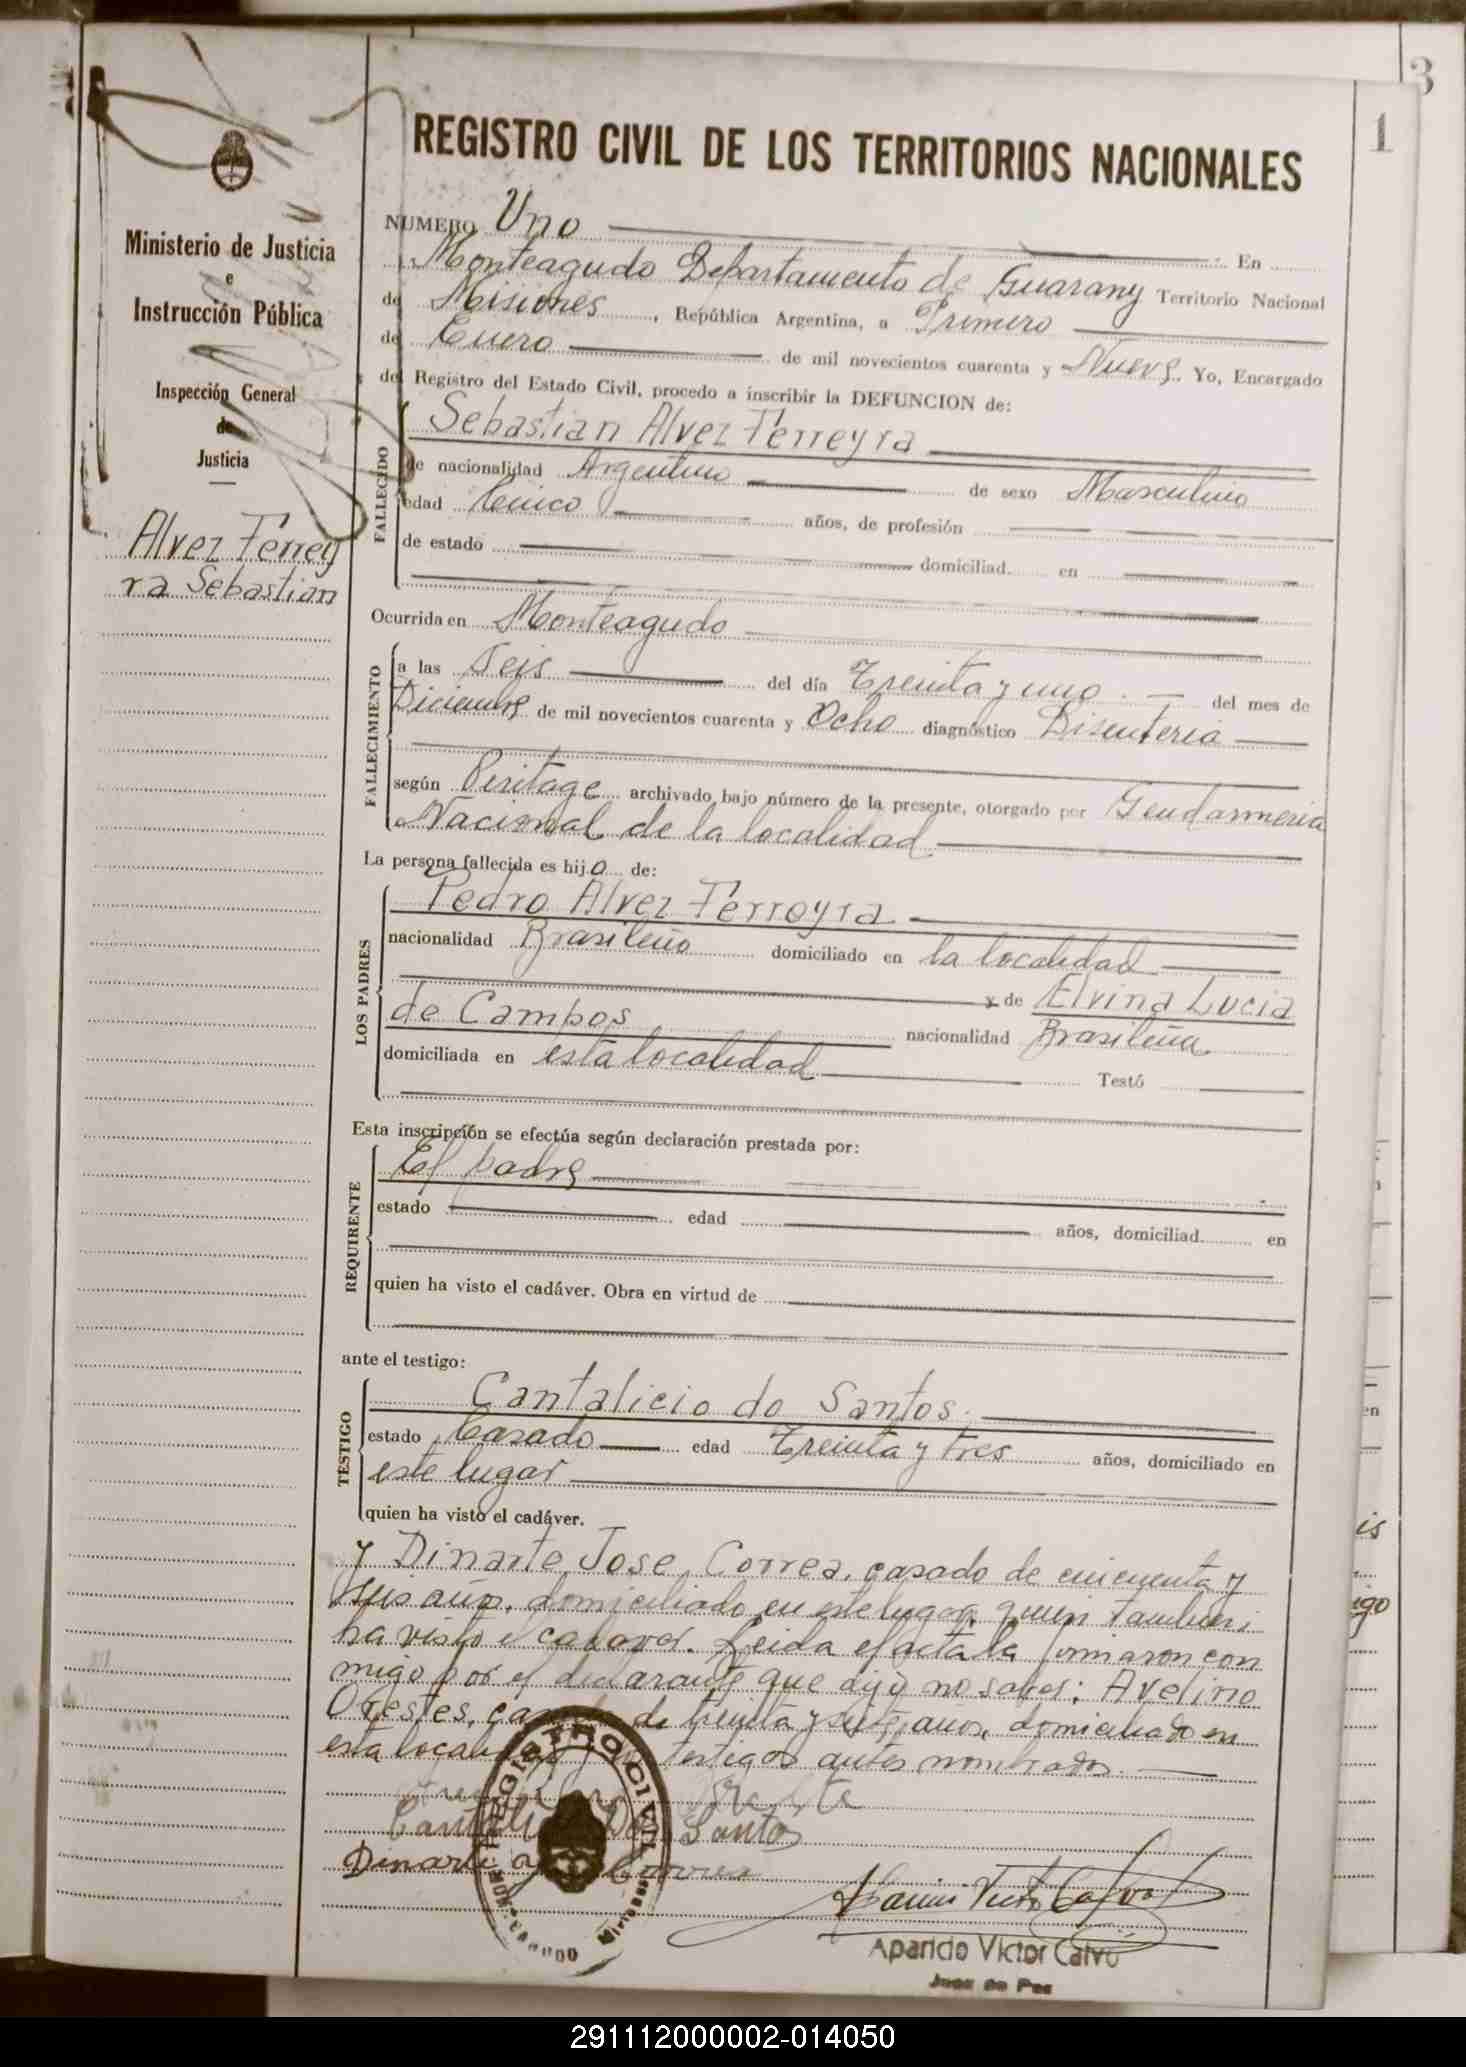 3
1
Ministerio de Justicia
e
Instrucción Pública
Inspección General
de
Justicia
Alvez Ferrey
ra Sebastian
REGISTRO CIVIL DE LOS TERRITORIOS NACIONALES
NUMERO Uno En
Monteagudo Departamento de Guarany Territorio Nacional
de Misiones, República Argentina, a Primero
de Enero de mil novecientos cuarenta y Nueve. Yo, Encargado
del Registro del Estado Civil, procedo a inscribir la DEFUNCION de:
FALLECIDO
Sebastian Alvez Ferreyra
de nacionalidad Argentino de sexo Masculino
edad Cinco años, de profesión
de estado domiciliad en
Ocurrida en Monteagudo
FALLECIMIENTO
a las Seis del día Treinta y uno del mes de
Diciembre de mil novecientos cuarenta y Ocho diagnóstico Disenteria
según Peritage archivado bajo número de la presente, otorgado por Gendarmeria
Nacional de la localidad
La persona fallecida es hijo de:
LOS PADRES
Pedro Alvez Ferreyra
nacionalidad Brasileño domiciliado en la localidad
y de Elvina Lucia
de Campos nacionalidad Brasileña
domiciliada en esta localidad Testó
Esta inscripción se efectúa según declaración prestada por:
REQUIRENTE
El padre
estado edad años, domiciliad en
quien ha visto el cadáver. Obra en virtud de
ante el testigo:
TESTIGO
Cantalicio do Santos.
estado Casado edad Treinta y tres años, domiciliado en
este lugar
quien ha visto el cadáver.
y Dinarte Jose Correa, casado de cincuenta y
seis años, domiciliado en este lugar, quien tambien
ha visto el cadaver. Leida el acta la firmaron con
migo por el declarante que dijo no saber: Avelino
Orestes, de treinta y años, domiciliado en
esta testigos antes nombrados.
Santos
Dinarte Correa
REGISTRO CIVIL
Misiones
Aparicio Victor Calvo
Juez de Paz
en
is
igo
291112000002-014050